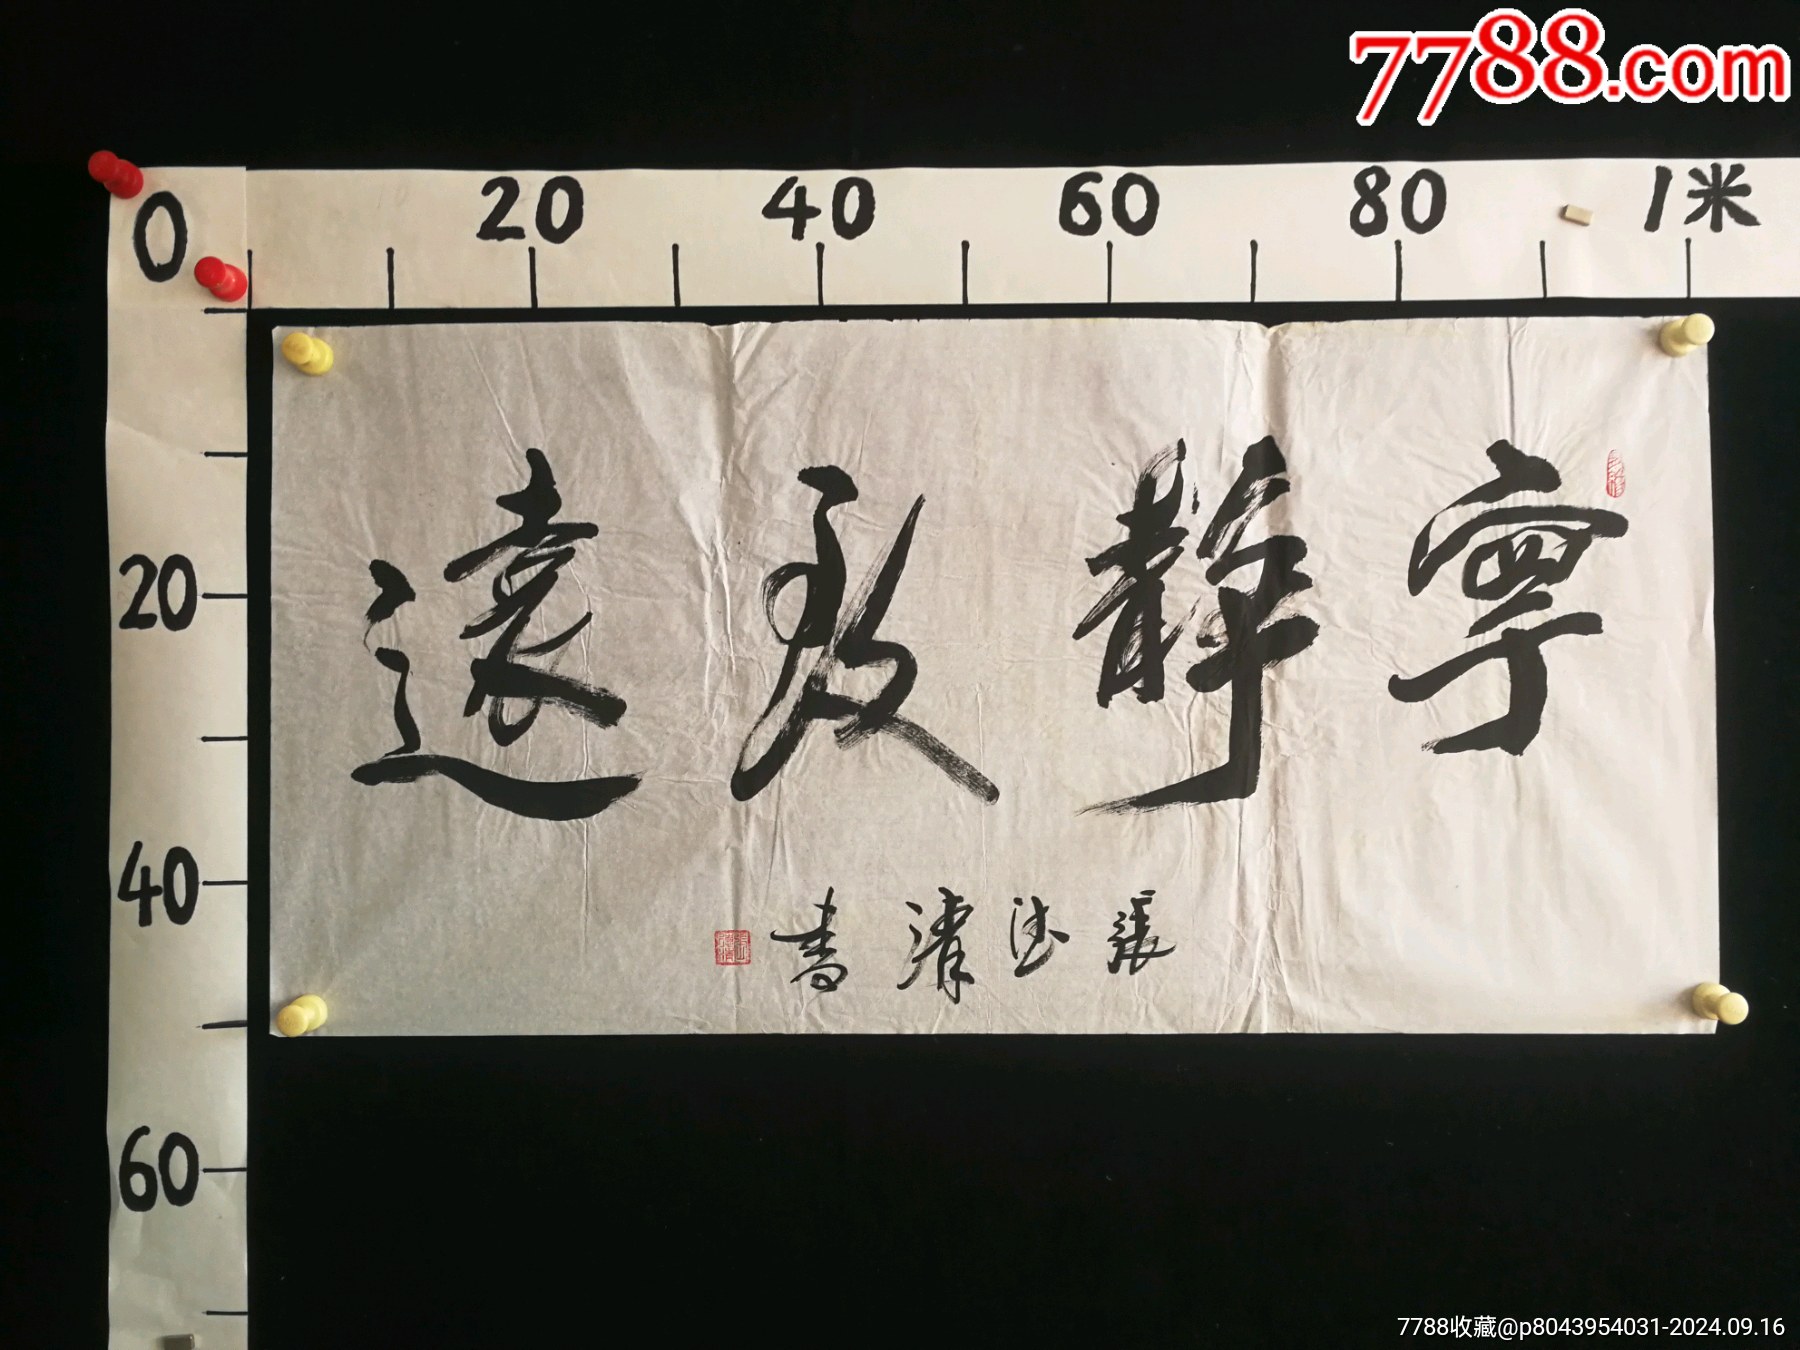 7788.com
0 20 40 60 80 1米
20
40
60
寧靜致遠
張法清書
7788收藏@p8043954031-2024.09.16